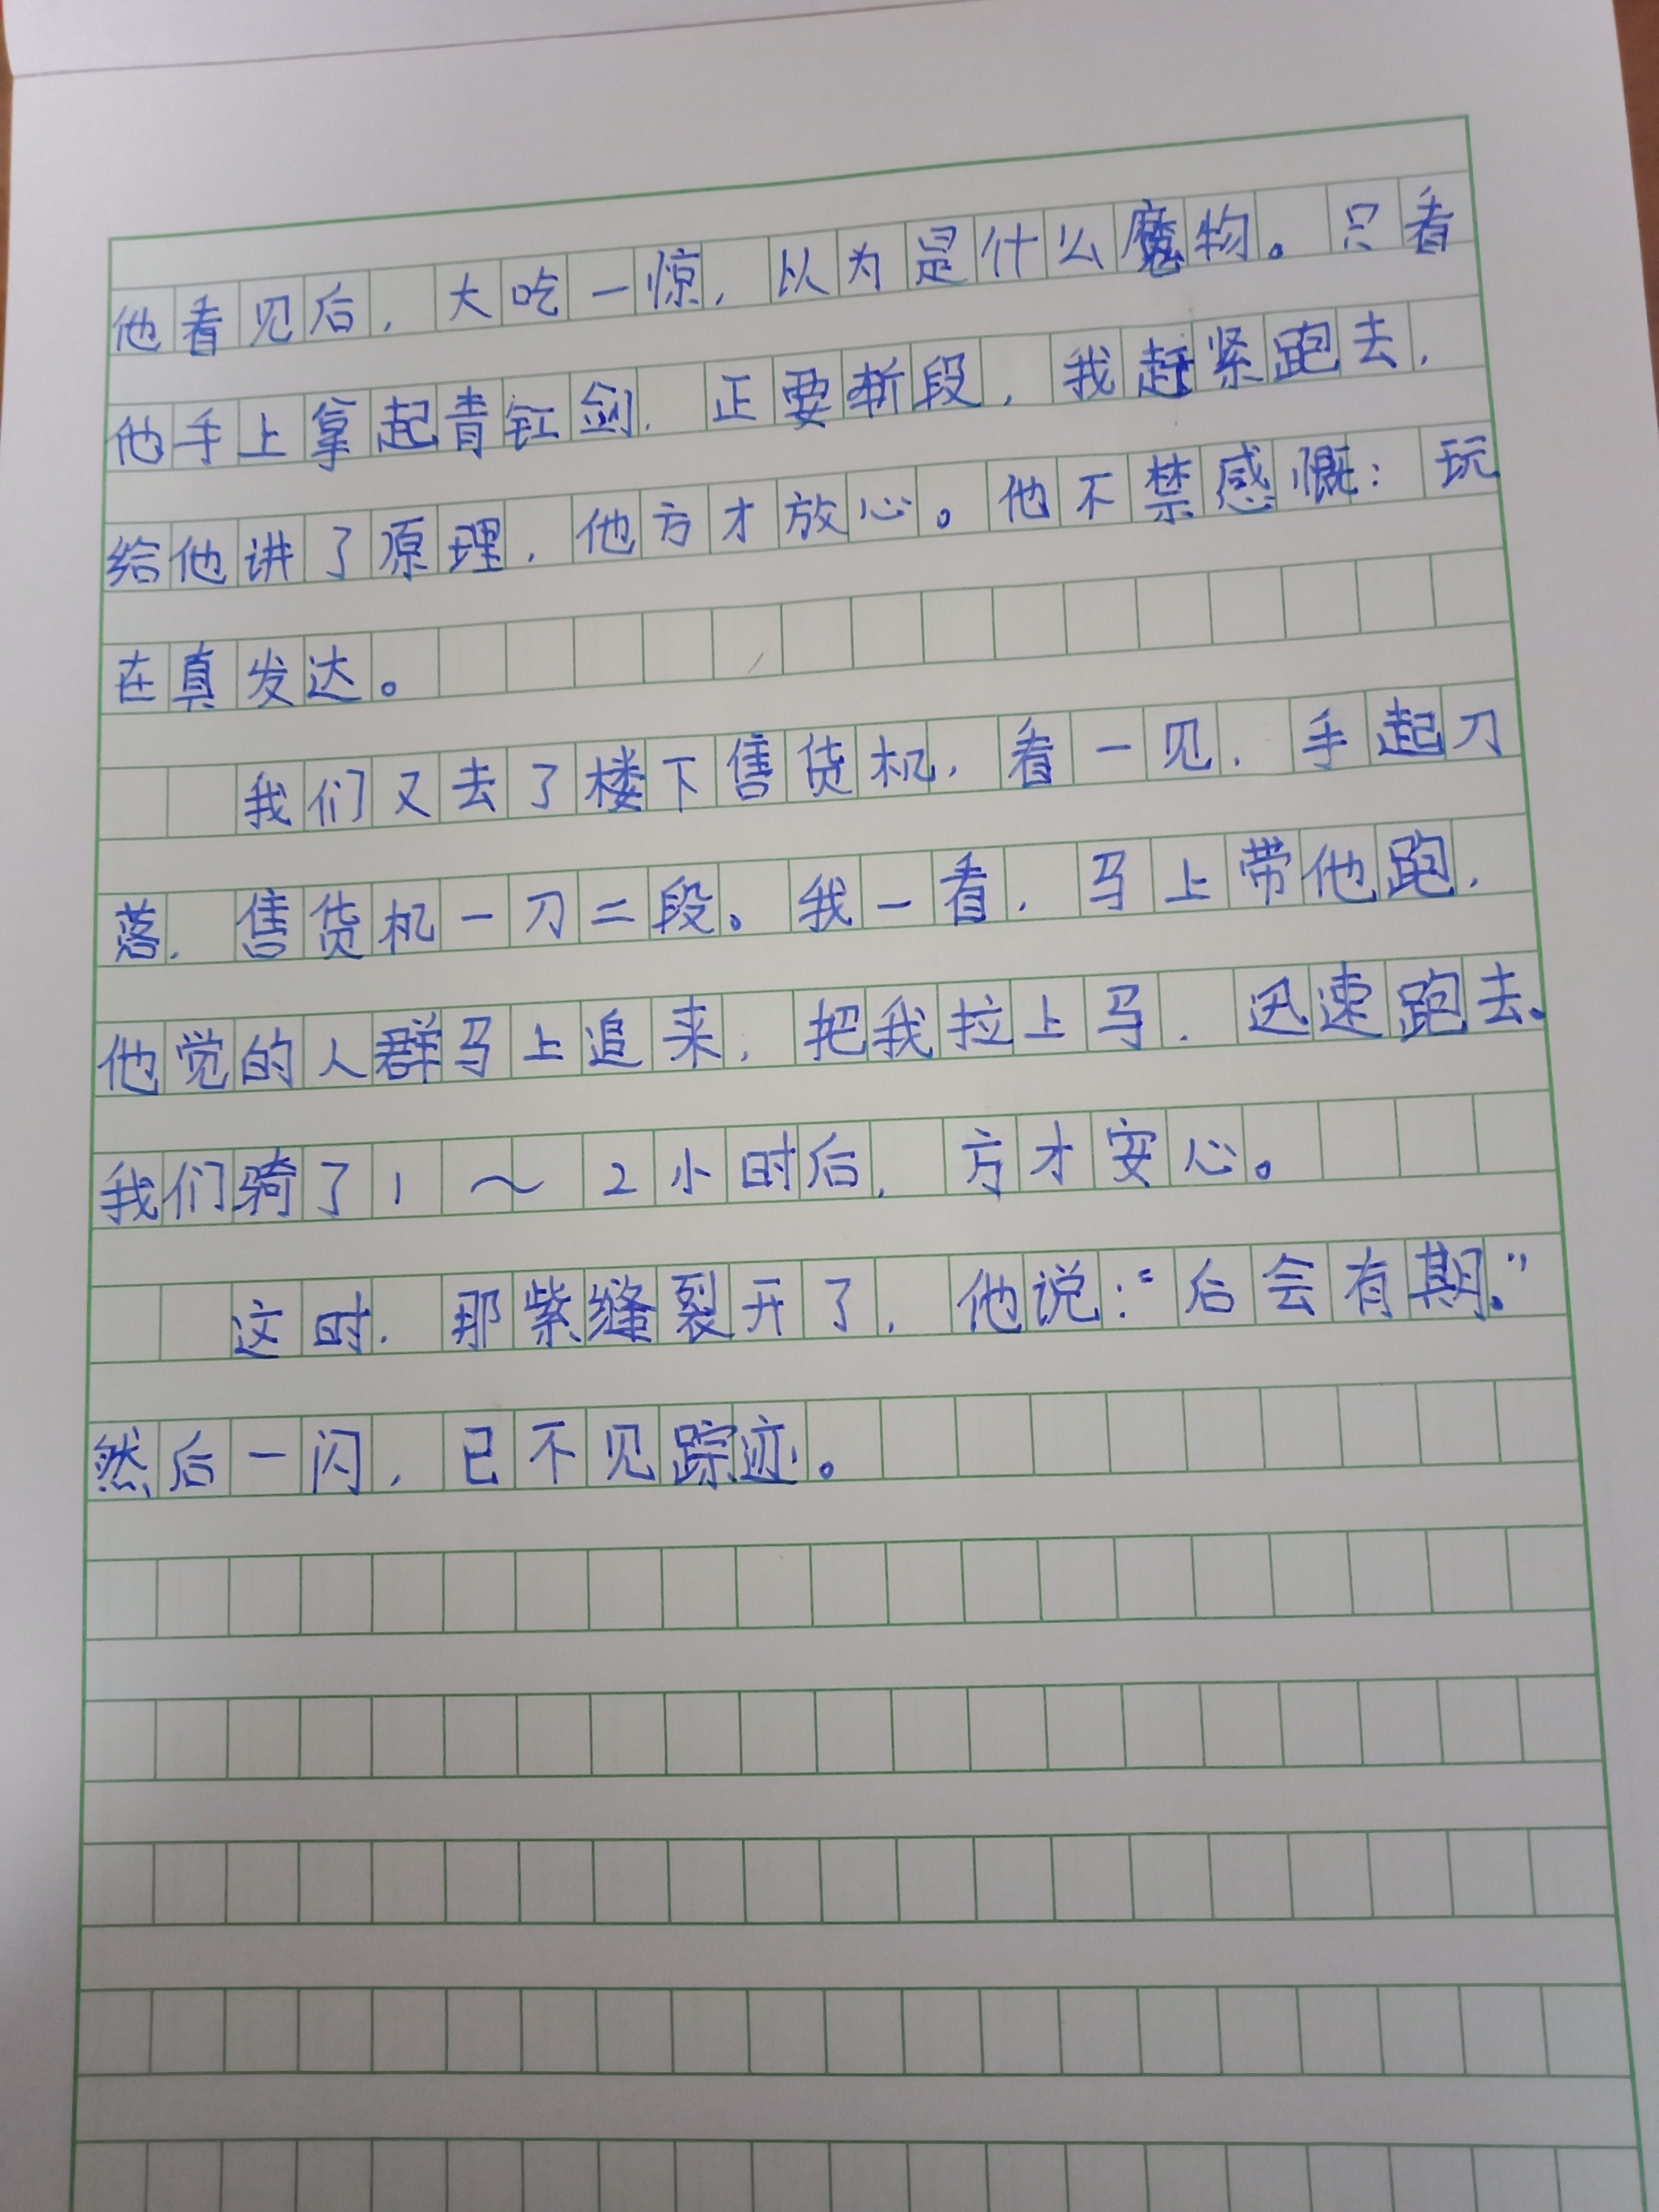 他看见后，大吃一惊，以为是什么魔物。只看
他手上拿起青釭剑，正要斩段，我赶紧跑去，
给他讲了原理，他方才放心。他不禁感慨：玩
在真发达。
我们又去了楼下售货机，看一见，手起刀
落，售货机一刀二段。我一看，马上带他跑，
他觉的人群马上追来，把我拉上马，迅速跑去。
我们骑了1～2小时后，方才安心。
这时，那紫缝裂开了，他说：“后会有期。”
然后一闪，已不见踪迹。